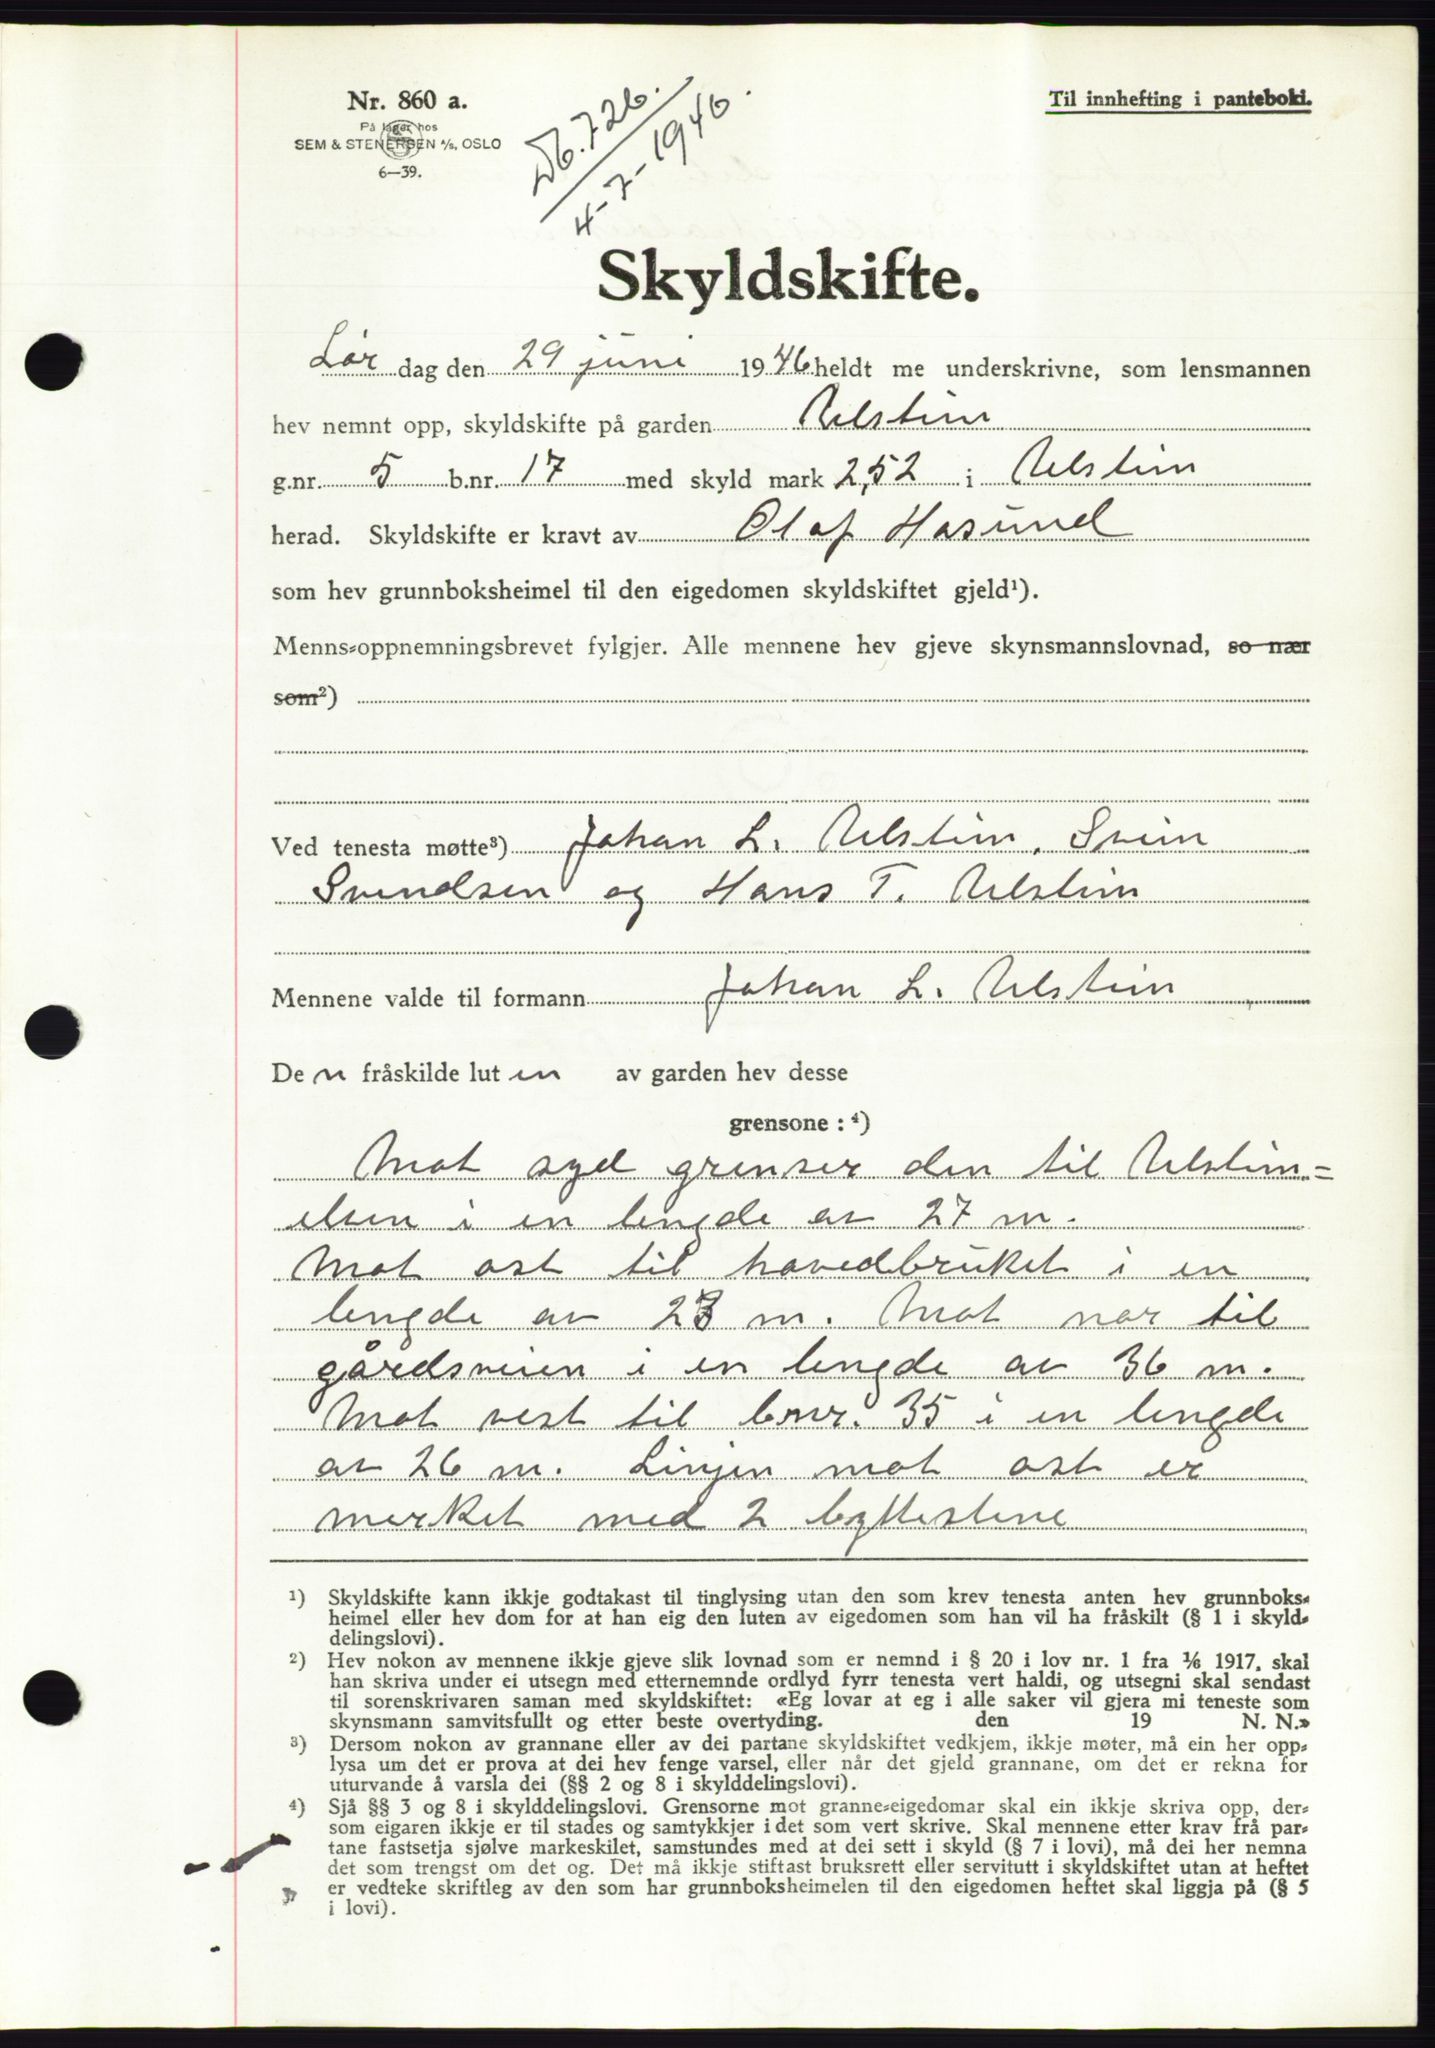 Nr. 860 a.
På lager hos
SEM & STENERSEN A/S, OSLO
6—39.
Db. 726.
4-7-1946.
Til innhefting i panteboki.
Skyldskifte.
Lør dag den 29 juni 1946 heldt me underskrivne, som lensmannen
hev nemnt opp, skyldskifte på garden Ulstein
g.nr. 5 b.nr. 17 med skyld mark 2,52 i Ulstein
herad. Skyldskifte er kravt av Olaf Hasund
som hev grunnboksheimel til den eigedomen skyldskiftet gjeld¹).
Menns-oppnemningsbrevet fylgjer. Alle mennene hev gjeve skynsmannslovnad, so nær
som²)
Ved tenesta møtte³) Johan L. Ulstein, Svein
Svendsen og Hans T. Ulstein
Mennene valde til formann Johan L. Ulstein
De n fråskilde lut en av garden hev desse
grensone : ⁴)
Mot syd grenser den til Ulstein=
elven i en lengde av 27 m.
Mot øst til hovedbruket i en
lengde av 23 m. Mot nor til
gårdsveien i en lengde av 36 m.
Mot vest til bnr. 35 i en lengde
av 26 m. Linjen mot øst er
merket med 2 byttestene
¹) Skyldskifte kann ikkje godtakast til tinglysing utan den som krev tenesta anten hev grunnboks-
heimel eller hev dom for at han eig den luten av eigedomen som han vil ha fråskilt (§ 1 i skyld-
delingslovi).
²) Hev nokon av mennene ikkje gjeve slik lovnad som er nemnd i § 20 i lov nr. 1 fra 1/6 1917, skal
han skriva under ei utsegn med etternemnde ordlyd fyrr tenesta vert haldi, og utsegni skal sendast
til sorenskrivaren saman med skyldskiftet: «Eg lovar at eg i alle saker vil gjera mi teneste som
skynsmann samvitsfullt og etter beste overtyding. den 19 N. N.»
³) Dersom nokon av grannane eller av dei partane skyldskiftet vedkjem, ikkje møter, må ein her opp-
lysa um det er prova at dei hev fenge varsel, eller når det gjeld grannane, om det er rekna for
uturvande å varsla dei (§§ 2 og 8 i skylddelingslovi).
⁴) Sjå §§ 3 og 8 i skylddelingslovi. Grensorne mot granne-eigedomar skal ein ikkje skriva opp, der-
som eigaren ikkje er til stades og samtykkjer i det som vert skrive. Skal mennene etter krav frå par-
tane fastsetja sjølve markeskilet, samstundes med at dei sett i skyld (§ 7 i lovi), må dei her nemna
det som trengst om det og. Det må ikkje stiftast bruksrett eller servitutt i skyldskiftet utan at heftet
er vedteke skriftleg av den som har grunnboksheimelen til den eigedomen heftet skal liggja på (§ 5
i lovi).